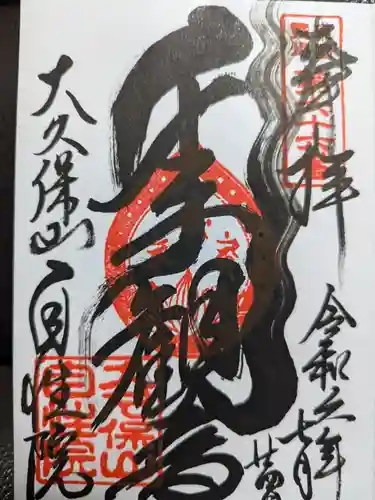 奉拝
令和元年
七月
聖観音
大久保山 自性院
大久保山
自性院